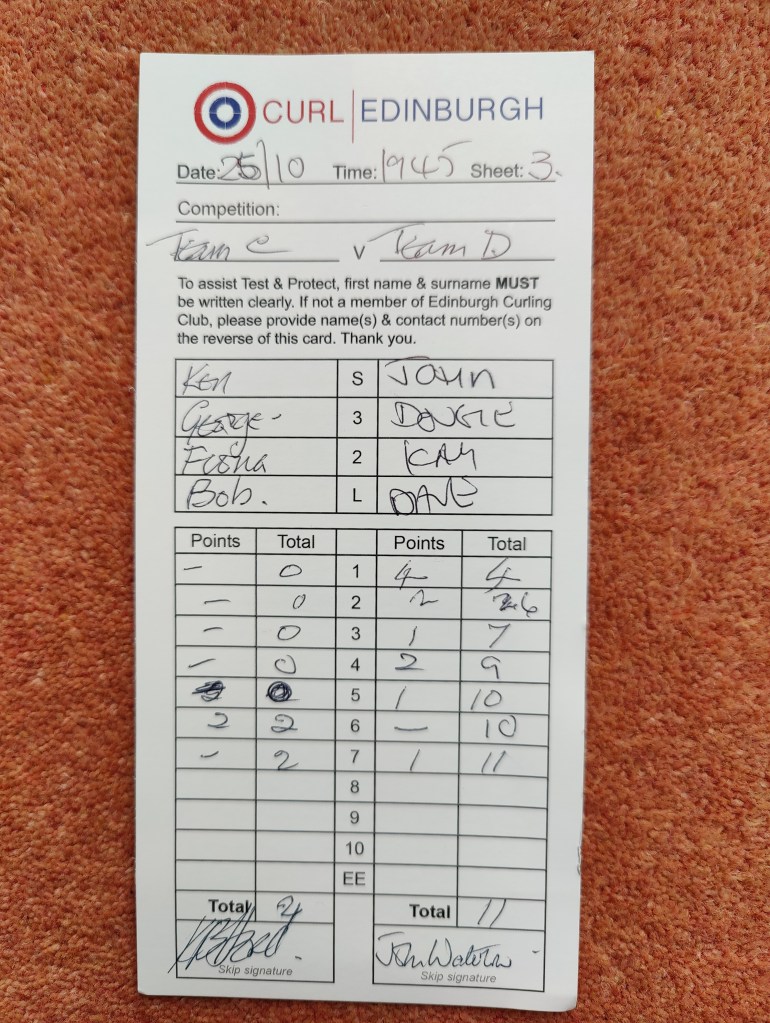 CURL EDINBURGH
Date: 25/10 Time: 1945 Sheet: 3.
Competition:
Team C v Team D
To assist Test & Protect, first name & surname MUST
be written clearly. If not a member of Edinburgh Curling
Club, please provide name(s) & contact number(s) on
the reverse of this card. Thank you.
Ken S JOHN
George - 3 DOUGIE
Fiona 2 KAY
Bob. L DAVE
Points Total Points Total
- 0 1 4 4
- 0 2 2 6
- 0 3 1 7
- 0 4 2 9
5 1 10
2 2 6 - 10
- 2 7 1 11
8
9
10
EE
Total 2 Total 11
John
Skip signature Skip signature